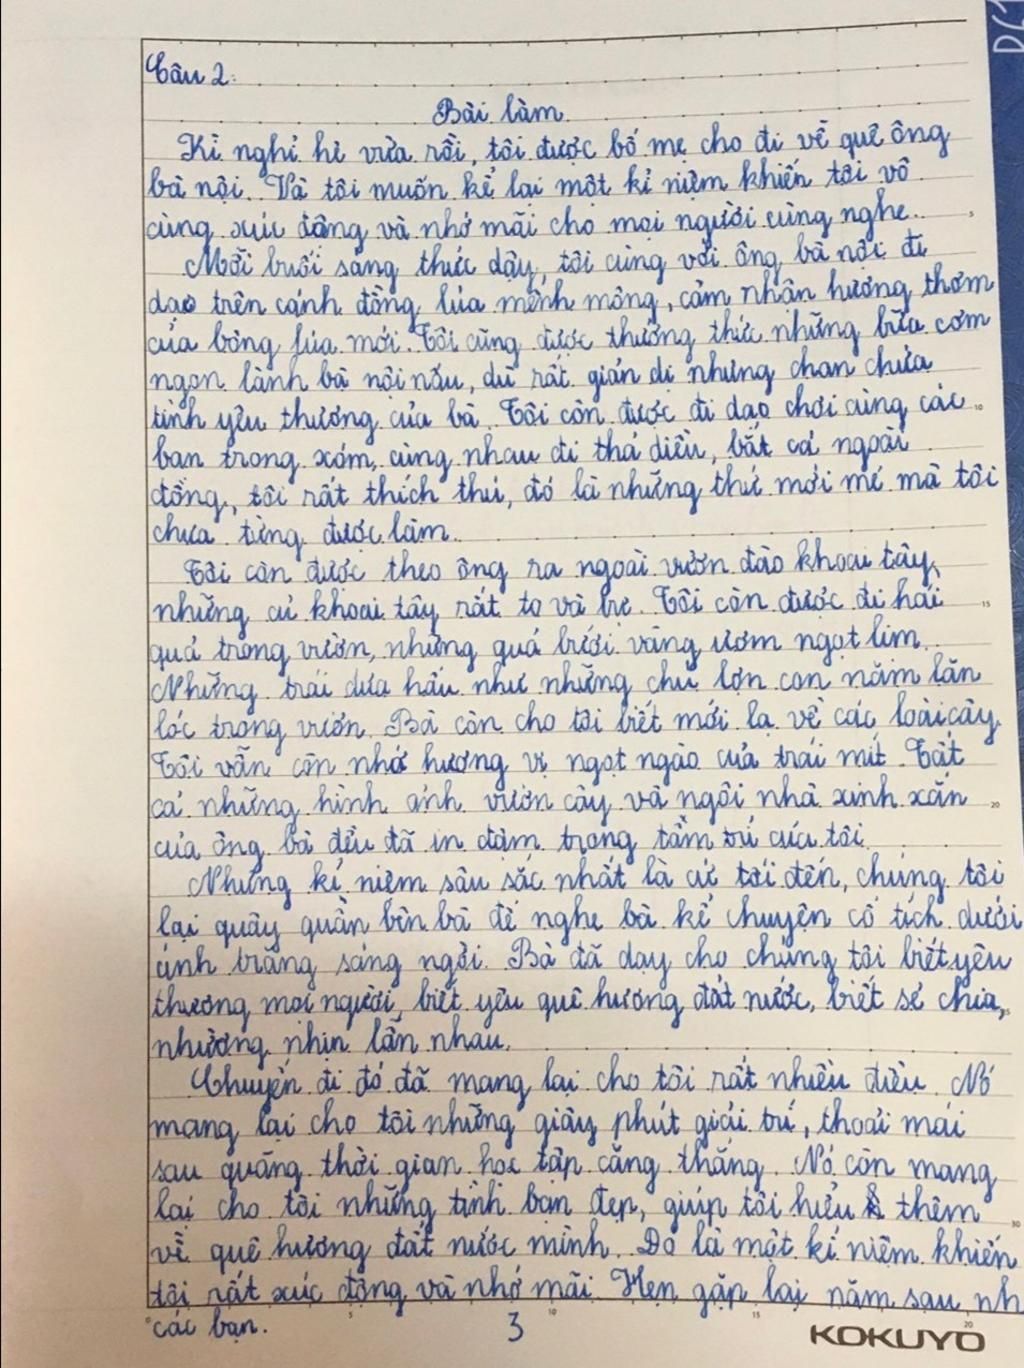 Câu 2:
Bài làm
Kì nghỉ hè vừa rồi, tôi được bố mẹ cho đi về quê ông
bà nội. Và tôi muốn kể lại một kỉ niệm khiến tôi vô
cùng xúc động và nhớ mãi cho mọi người cùng nghe.
Mỗi buổi sáng thức dậy, tôi cùng với ông bà nội đi
dạo trên cánh đồng lúa mênh mông, cảm nhận hương thơm
của bông lúa mới. Tôi cũng được thưởng thức những bữa cơm
ngon lành bà nội nấu, dù rất giản dị nhưng chan chứa
tình yêu thương của bà. Tôi còn được đi dạo chơi cùng các
bạn trong xóm, cùng nhau đi thả diều, bắt cá ngoài
đồng, tôi rất thích thú, đó là những thứ mới mẻ mà tôi
chưa từng được làm.
Tôi còn được theo ông ra ngoài vườn đào khoai tây,
những củ khoai tây rất to và bự. Tôi còn được đi hái
quả trong vườn, những quả bưởi vàng ươm ngọt lịm.
Những trái dưa hấu như những chú lợn con nằm lăn
lóc trong vườn. Bà còn cho tôi biết mới lạ về các loài cây.
Tôi vẫn còn nhớ hương vị ngọt ngào của trái mít. Tất
cả những hình ảnh vườn cây và ngôi nhà xinh xắn
của ông bà đều đã in đậm trong tâm trí của tôi.
Nhưng kỉ niệm sâu sắc nhất là cứ tối đến, chúng tôi
lại quây quần bên bà để nghe bà kể chuyện cổ tích dưới
ánh trăng sáng ngời. Bà đã dạy cho chúng tôi biết yêu
thương mọi người, biết yêu quê hương đất nước, biết sẻ chia,
nhường nhịn lẫn nhau.
Chuyến đi đó đã mang lại cho tôi rất nhiều điều. Nó
mang lại cho tôi những giây phút giải trí, thoải mái
sau quãng thời gian học tập căng thẳng. Nó còn mang
lại cho tôi những tình bạn đẹp, giúp tôi hiểu thêm
về quê hương đất nước mình. Đó là một kỉ niệm khiến
tôi rất xúc động và nhớ mãi. Hẹn gặp lại năm sau nh
các bạn.
3
KOKUYO